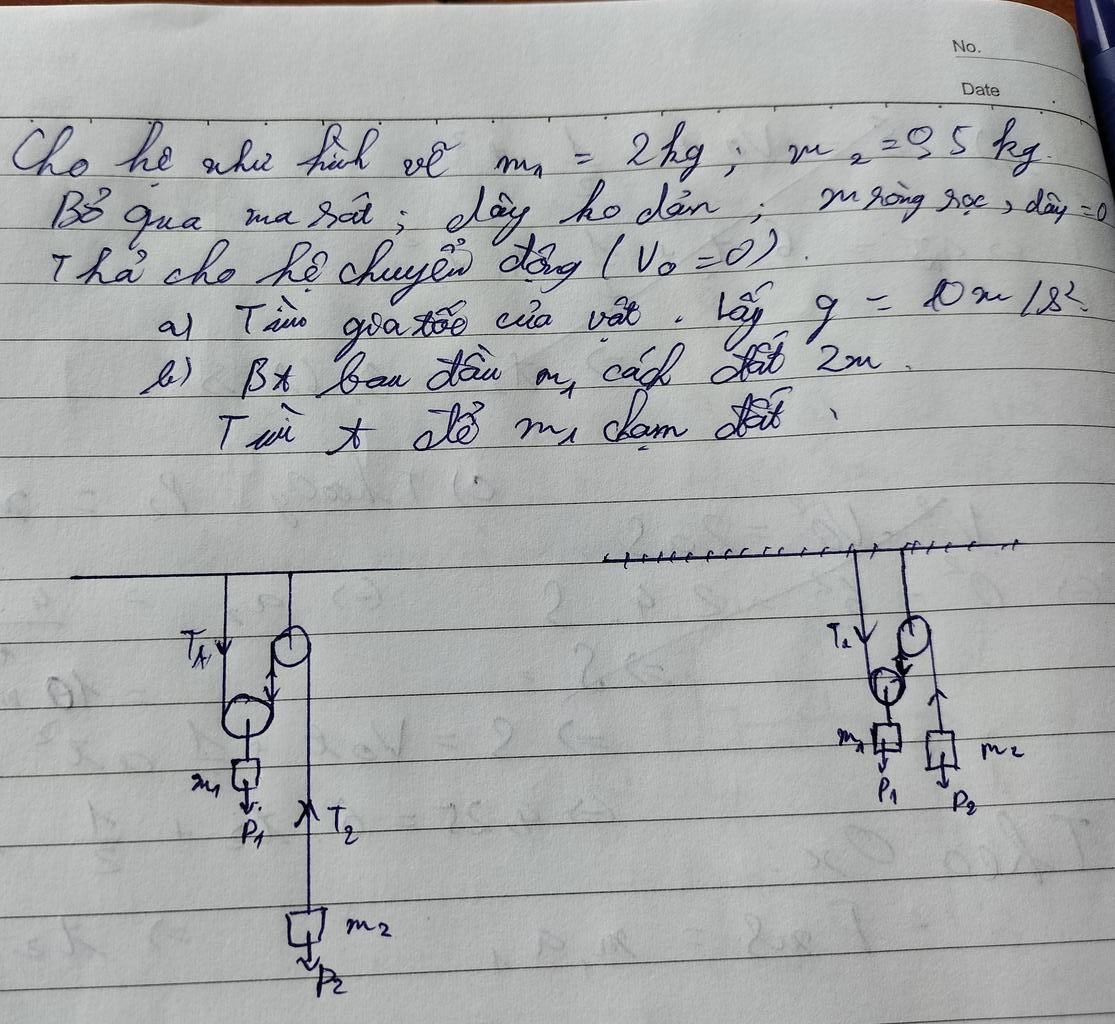 No.
Date
Cho hệ như hình vẽ m₁ = 2kg ; m₂ = 0,5 kg.
Bỏ qua ma sát ; dây ko dản ; m ròng rọc, dây = 0
Thả cho hệ chuyển động (V₀ = 0).
a) Tìm gia tốc của vật. Lấy g = 10m/s².
b) Bt ban đầu m₁ cách đất 2m.
Tìm t để m₁ chạm đất.
T₁
T₁
m₁
m₂
m₁
P₁
P₂
P₁
T₂
m₂
P₂